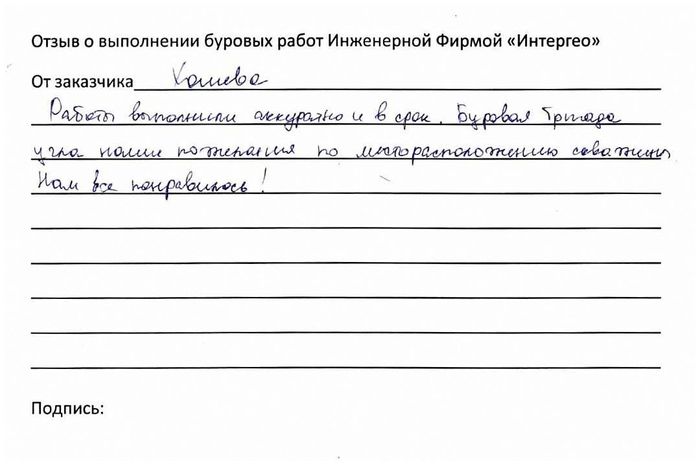 Отзыв о выполнении буровых работ Инженерной Фирмой «Интергео»
От заказчика
Работы выполнили аккуратно и в срок. Буровая бригада
учла наши пожелания по месторасположению скважины
Нам все понравилось!
Подпись: